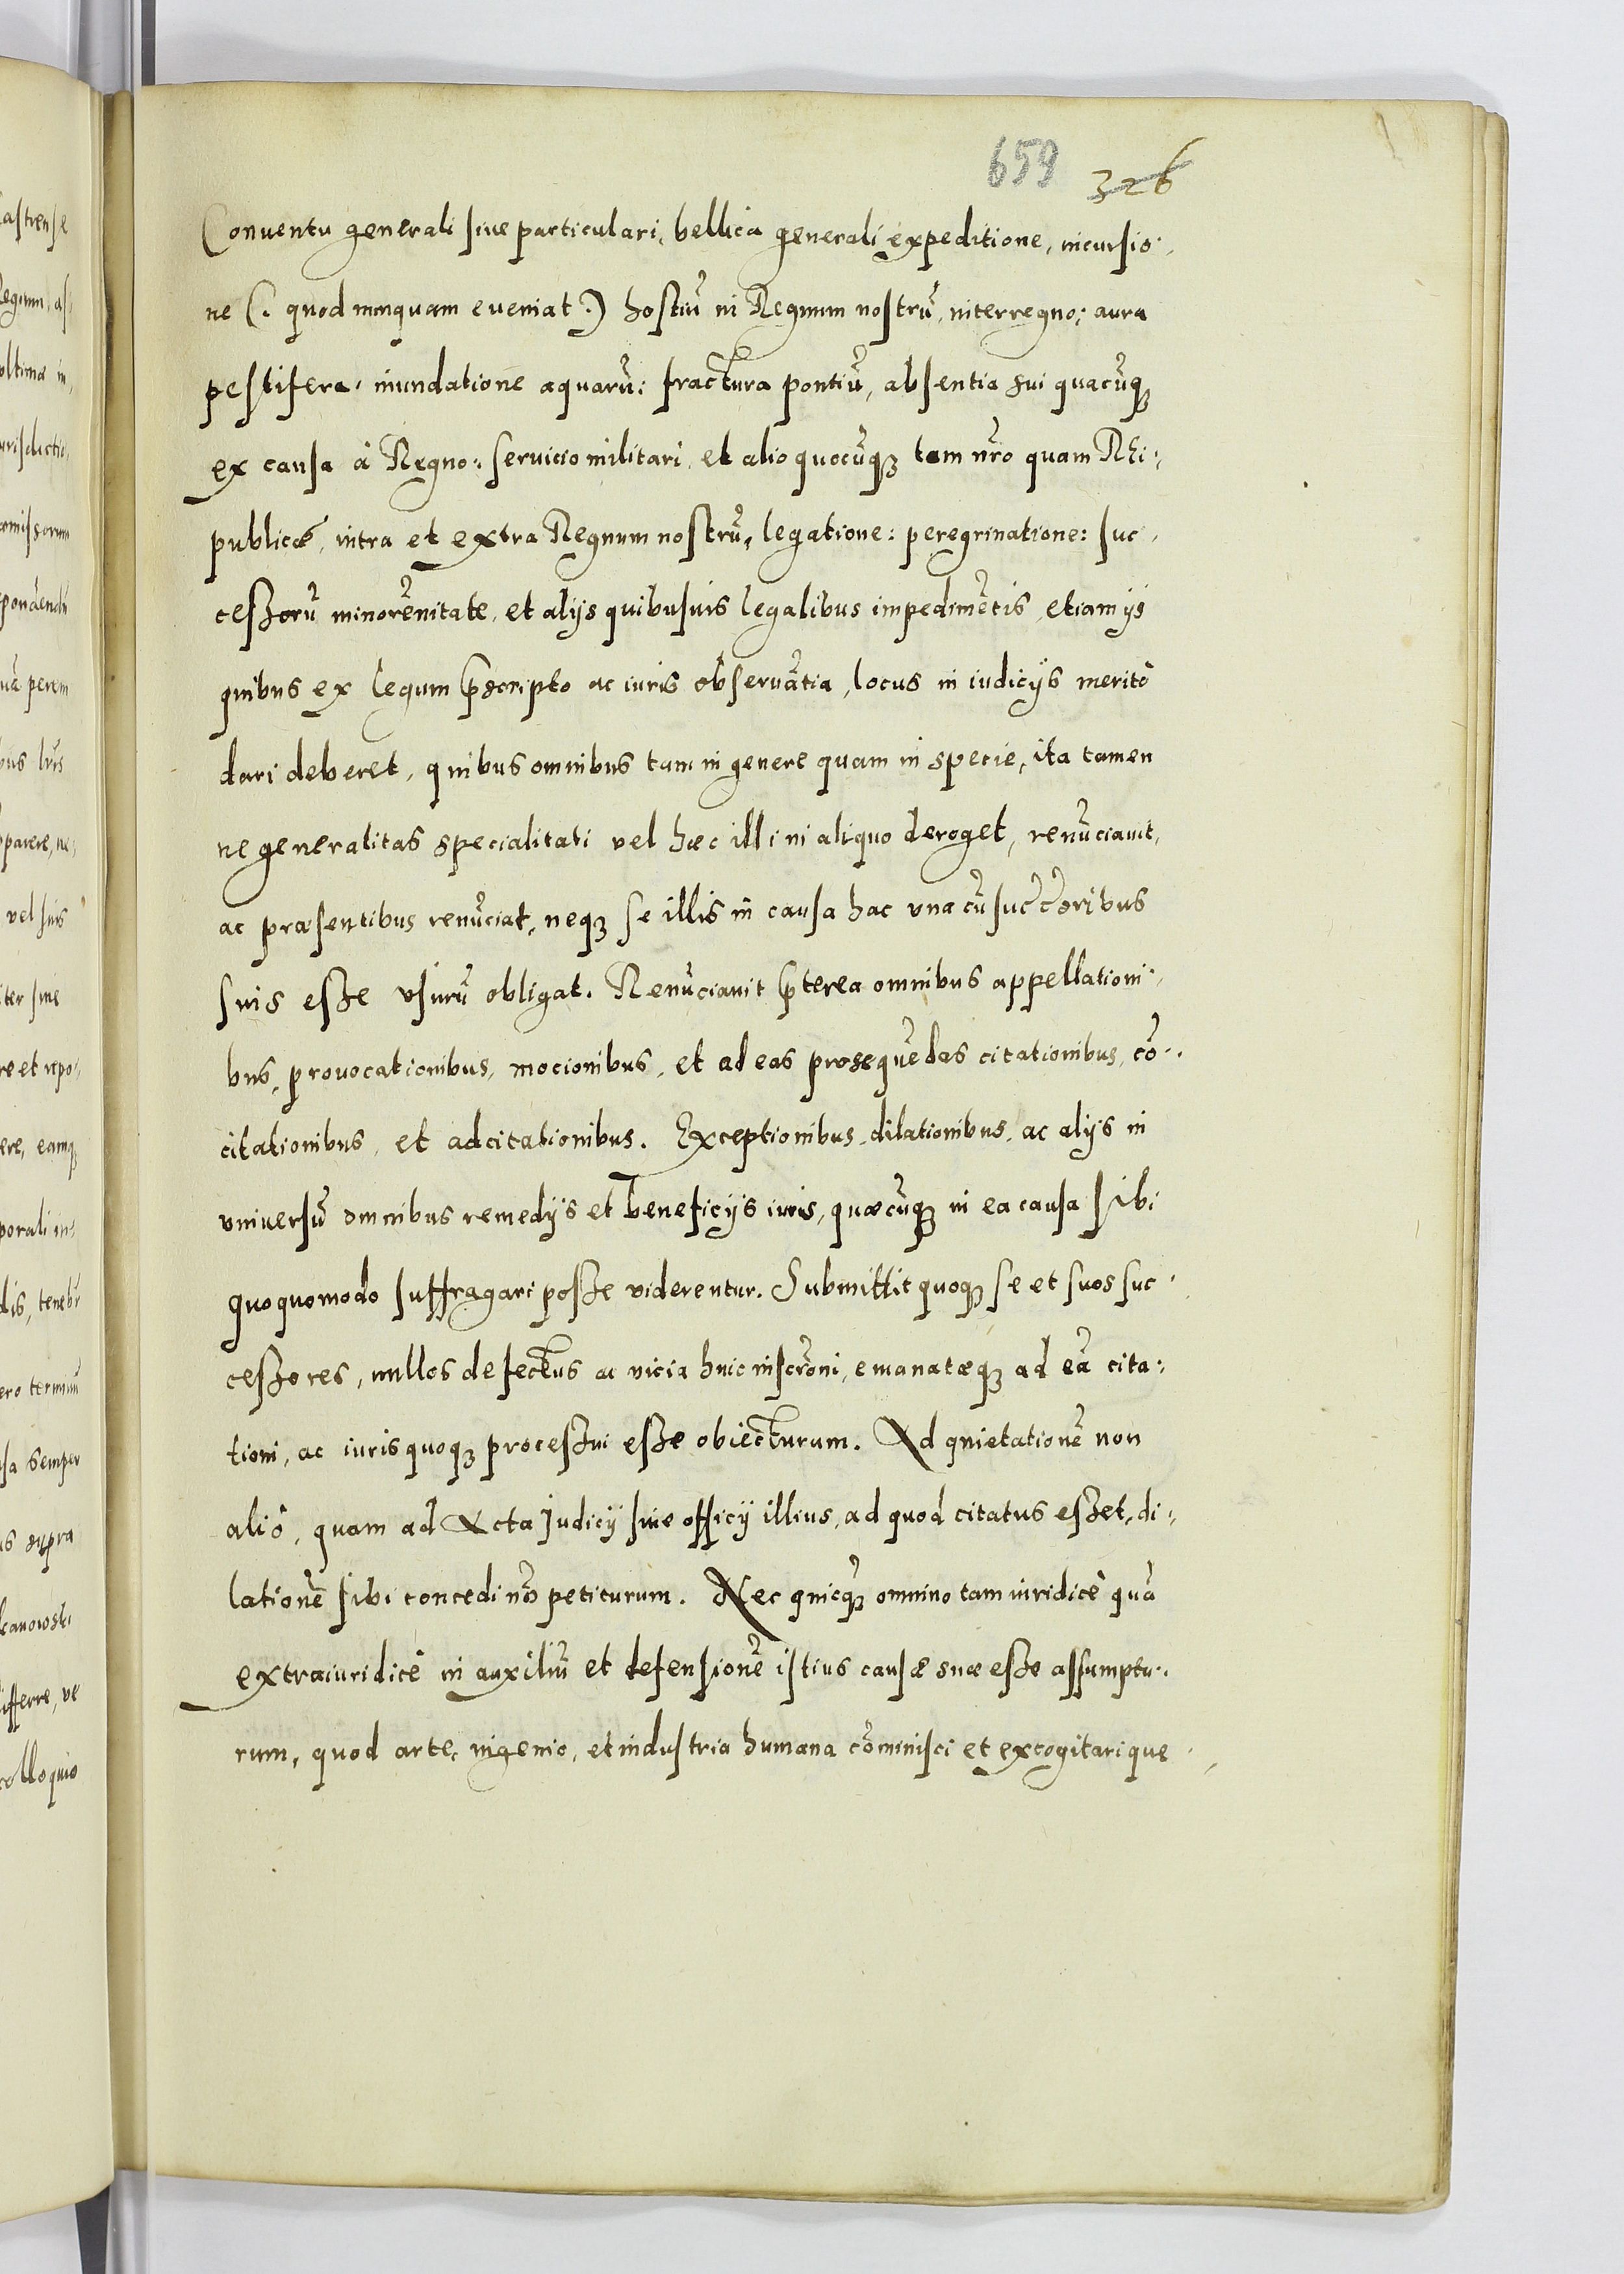 659 326
Conventu generali sive particulari, bellica generali expeditione, incursio-
ne (. quod nunquam eveniat .) hostiū in Regnum nostrū, interregno: aura
pestifera. inundatione aquarū: fractura pontiū, absentia sui quacūq3
ex causa à Regno: servicio militari, et alio quocūq3 tam nr̄o quam Rei:
publicæ, intra et extra Regnum nostrū, legatione: peregrinatione: suc-
cessorū minorēnitate, et alijs quibusuis legalibus impedimētis, etiam ijs
quibus ex legum p̄scripto ac iuris observātia, locus in iudicijs meritò
dari deberet, quibus omnibus tam in genere quam in specie, ita tamen
ne generalitas specialitati vel hæc illi in aliquo deroget, renūciavit,
ac præsentibus renūciat, neq3 se illis in causa hac vna cū succ̄oribus
suis esse vsurū obligat. Renūciauit p̄terea omnibus appellationi-
bus, provocationibus, mocionibus, et ad eas prosequēdas citationibus, cō-
citationibus, et adcitationibus. Exceptionibus, dilationibus, ac alijs in
vniversū omnibus remedijs et beneficijs iuris, quæcūq3 in ea causa sibi
quoquomodo suffragari posse viderentur. Submittit quoq3 se et suos suc-
cessores, nullos defectus ac vicia huic inscr̄oni, emanatæq3 ad eā cita:
tioni, ac iuris quoq3 processui esse obiecturum. Ad quietationē non
aliò, quam ad Acta Judicij sive officij illius, ad quod citatus esset, di:
lationē sibi concedi nō petiturum. Nec quicq̄3 omnino tam iuridicè quā
extraiuridicè in auxiliū et defensionē istius causæ suæ esse assumptu-
rum, quod arte, ingenio, et industria humana cōminisci et excogitari que-